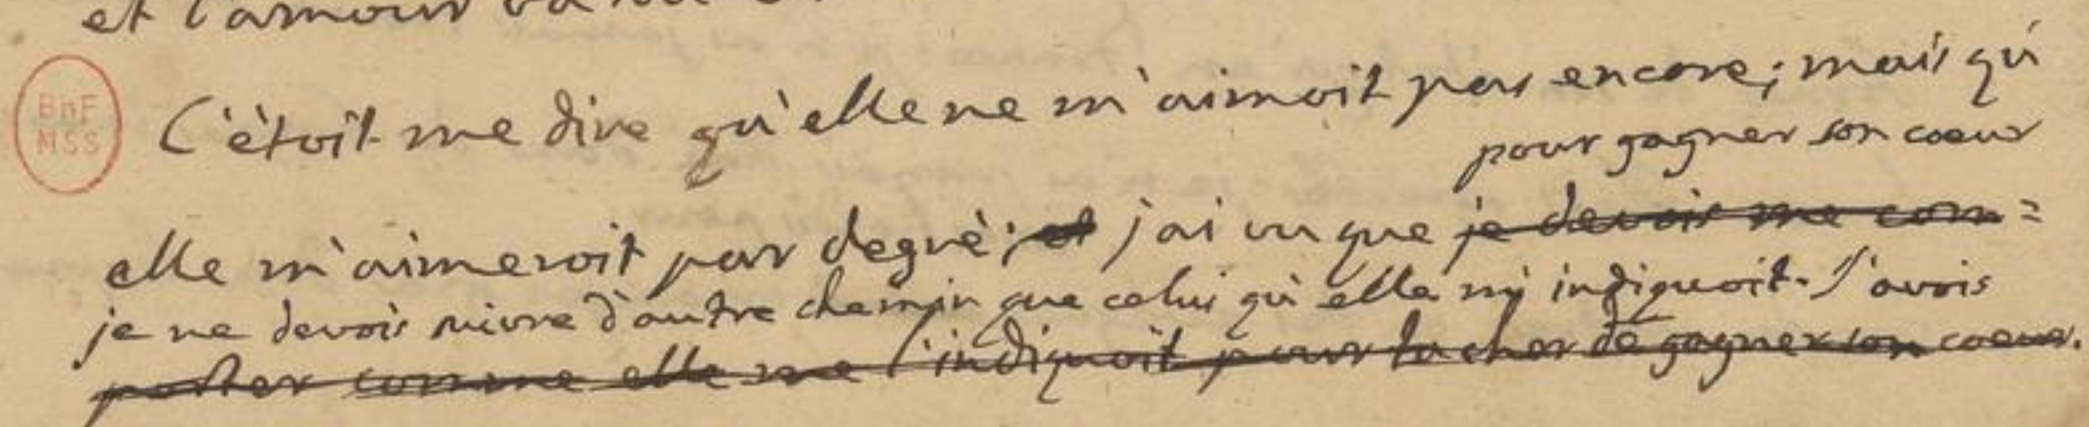 et l'amour
BnF
MSS
C'étoit me dire qu'elle ne m'aimoit pas encore; mais qu'
pour gagner son coeur
elle m'aimeroit par degré; et j'ai vu que je devois me com=
je ne devois suivre d'autre chemin que celui qu'elle m'y indiquoit. J'avois
porter comme elle me l'indiquoit pour tacher de gagner son coeur.